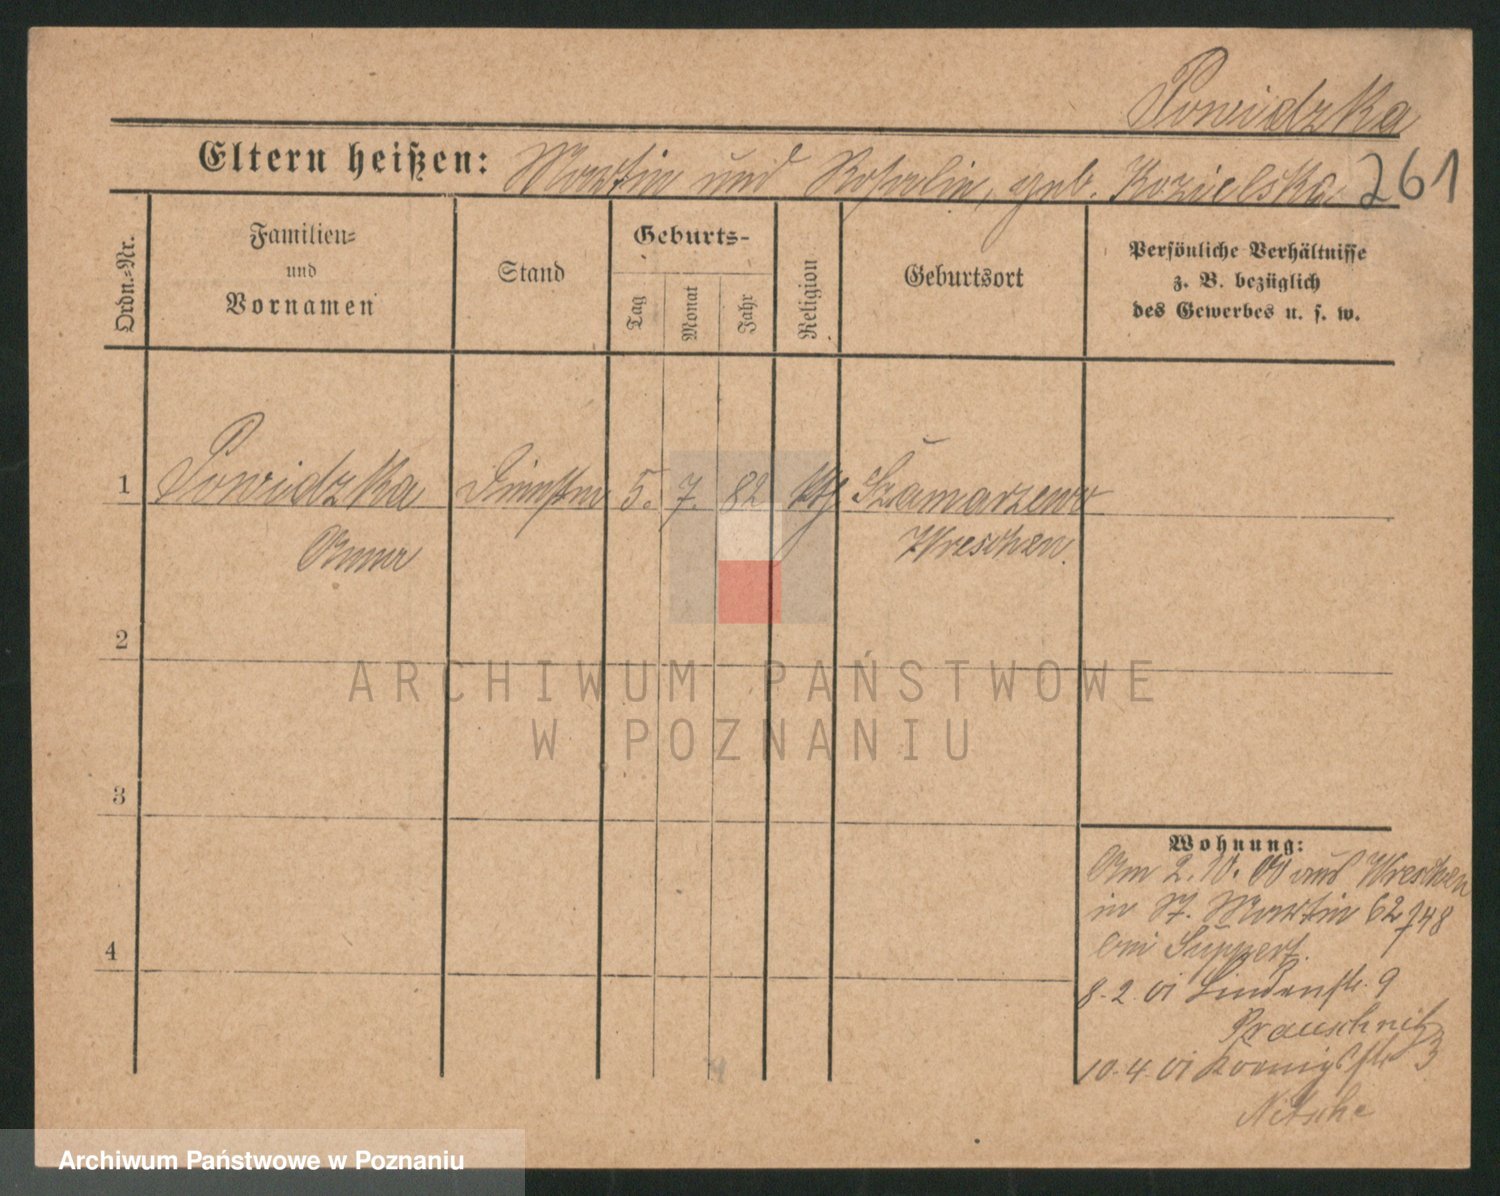 Powidzka
Eltern heißen: Martin und Rosalie, geb. Kozielska
261
Ordn.=Nr.
Familien=
und
Vornamen
Stand
Geburts-
Tag
Monat
Jahr
Religion
Geburtsort
Persönliche Verhältnisse
z. B. bezüglich
des Gewerbes u. s. w.
1 Powidzka 5. 7. 82 kth Szamarzewo
Anna Wreschen
2
3
4
Wohnung:
Am 2. 10. 00 aus Wreschen
in St. Martin 62
bei Suppert.
8.2 01 Lindenstr. 9
Prauschnitz
10.4.01 Koenigstr 3
Nitsche
ARCHIWUM PAŃSTWOWE
W POZNANIU
Archiwum Państwowe w Poznaniu